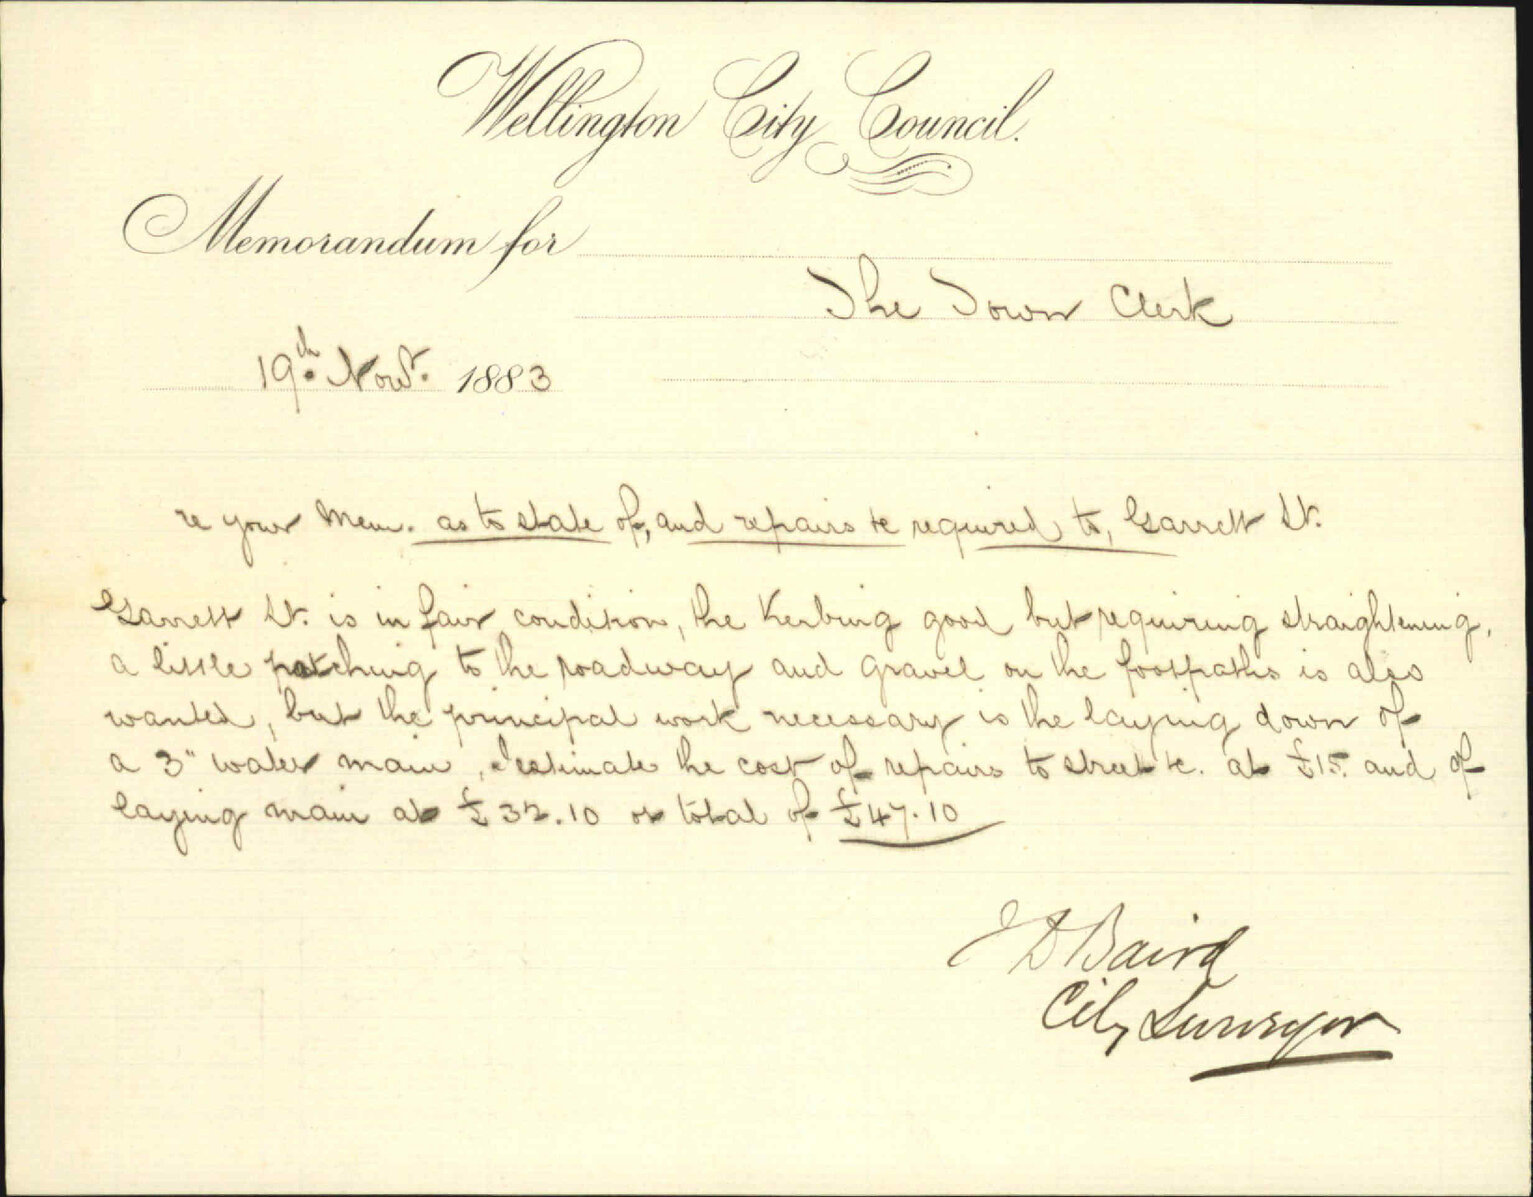 Wellington City Council.
Memorandum for
The Town Clerk
19th Novr. 1883
re your Mem. as to state of, and repairs &c required to, Garrett St.
Garrett St. is in fair condition, the Kerbing good but requiring straightening,
a little patching to the roadway and gravel on the footpaths is also
wanted, but the principal work necessary is the laying down of
a 3" water main, I estimate the cost of repairs to street &c. at £15. and of
laying main at £32.10 or total of £47.10
J D Baird
City Surveyor